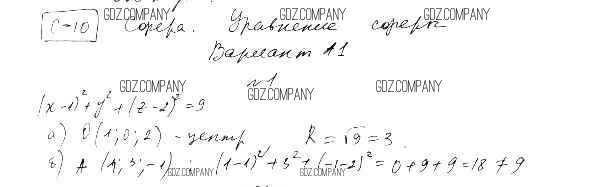 GDZ.COMPANY GDZ.COMPANY GDZ.COMPANY
С-10 Сфера. Уравнение сферы
Вариант А1
GDZ.COMPANY №1 GDZ.COMPANY
GDZ.COMPANY
(x-1)²+y²+(z-2)²=9
а) O(1;0;2) - центр R=√9=3.
б) A(1;3;-1) (1-1)²+3²+(-1-2)²=0+9+9=18≠9
GDZ.COMPANY GDZ.COMPANY